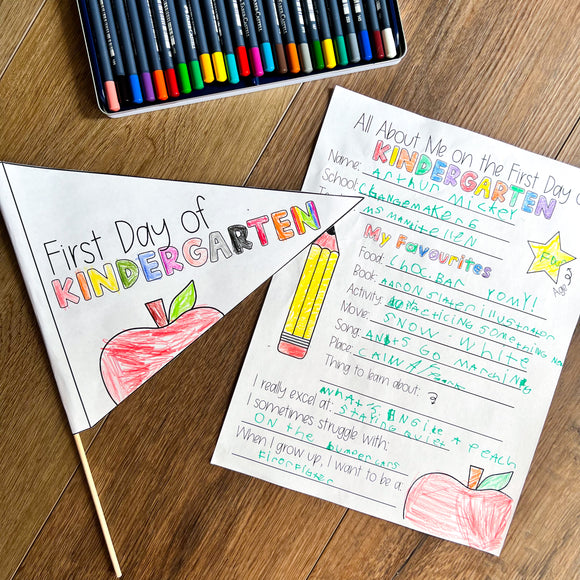 First Day of
KINDERGARTEN
All About Me on the First Day of
KINDERGARTEN
Name: Arthur Mickey
School: Changemakers
MS
My Favourites
Food: Choc BAR YOMY!
Book: AARON Slater illustrator
Activity: PRACTICING SOMETHING NEW
Movie: SNOW WHITE
Song: ANTS GO MARCHING
Place:
Thing to learn about:
WHAT'S INSIDE A PEACH
I really excel at: STAYING QUIET
I sometimes struggle with:
ON the
When I grow up, I want to be a:
Age